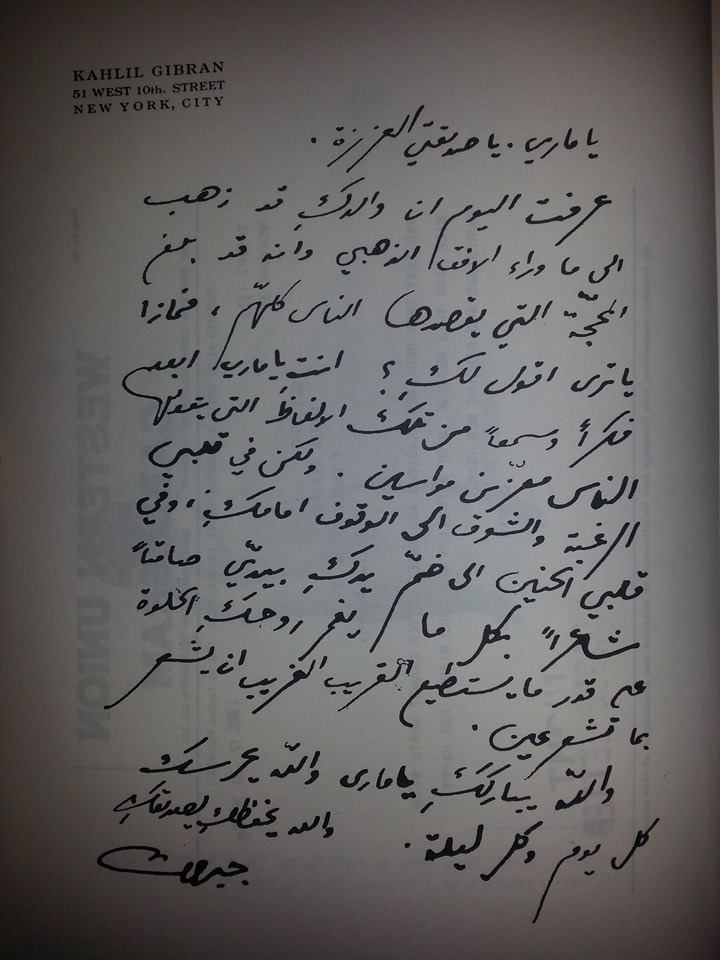 KAHLIL GIBRAN
51 WEST 10th. STREET
NEW YORK, CITY
يا ماري. يا صديقتي العزيزة.
عرفت اليوم ان والدكِ قد ذهب
الى ما وراء الافق الذهبي وانه قد بلغ
المحجّة التي يقصدها الناس كلهّم ، فماذا
يا ترى اقول لكِ ؟ انت يا ماري ابعد
فكراً وسمعاً من تلك الالفاظ التي يقولها
الناس معزّين مواسين . ولكن في قلبي
الرغبة والشوق الى الوقوف امامكِ ، وفي
قلبي الحنين الى ضمّ يدكِ بيديّ صامتاً
شاعراً بكل ما يغمر روحكِ الحلوة
على قدر ما يستطيع القريب الغريب ان يشعر
بما تشعرين .
والله يباركَكِ يا ماري والله يحرسك
كل يوم وكل ليلة . والله يحفظكِ لصديقكِ
جبران
WESTERN UNION